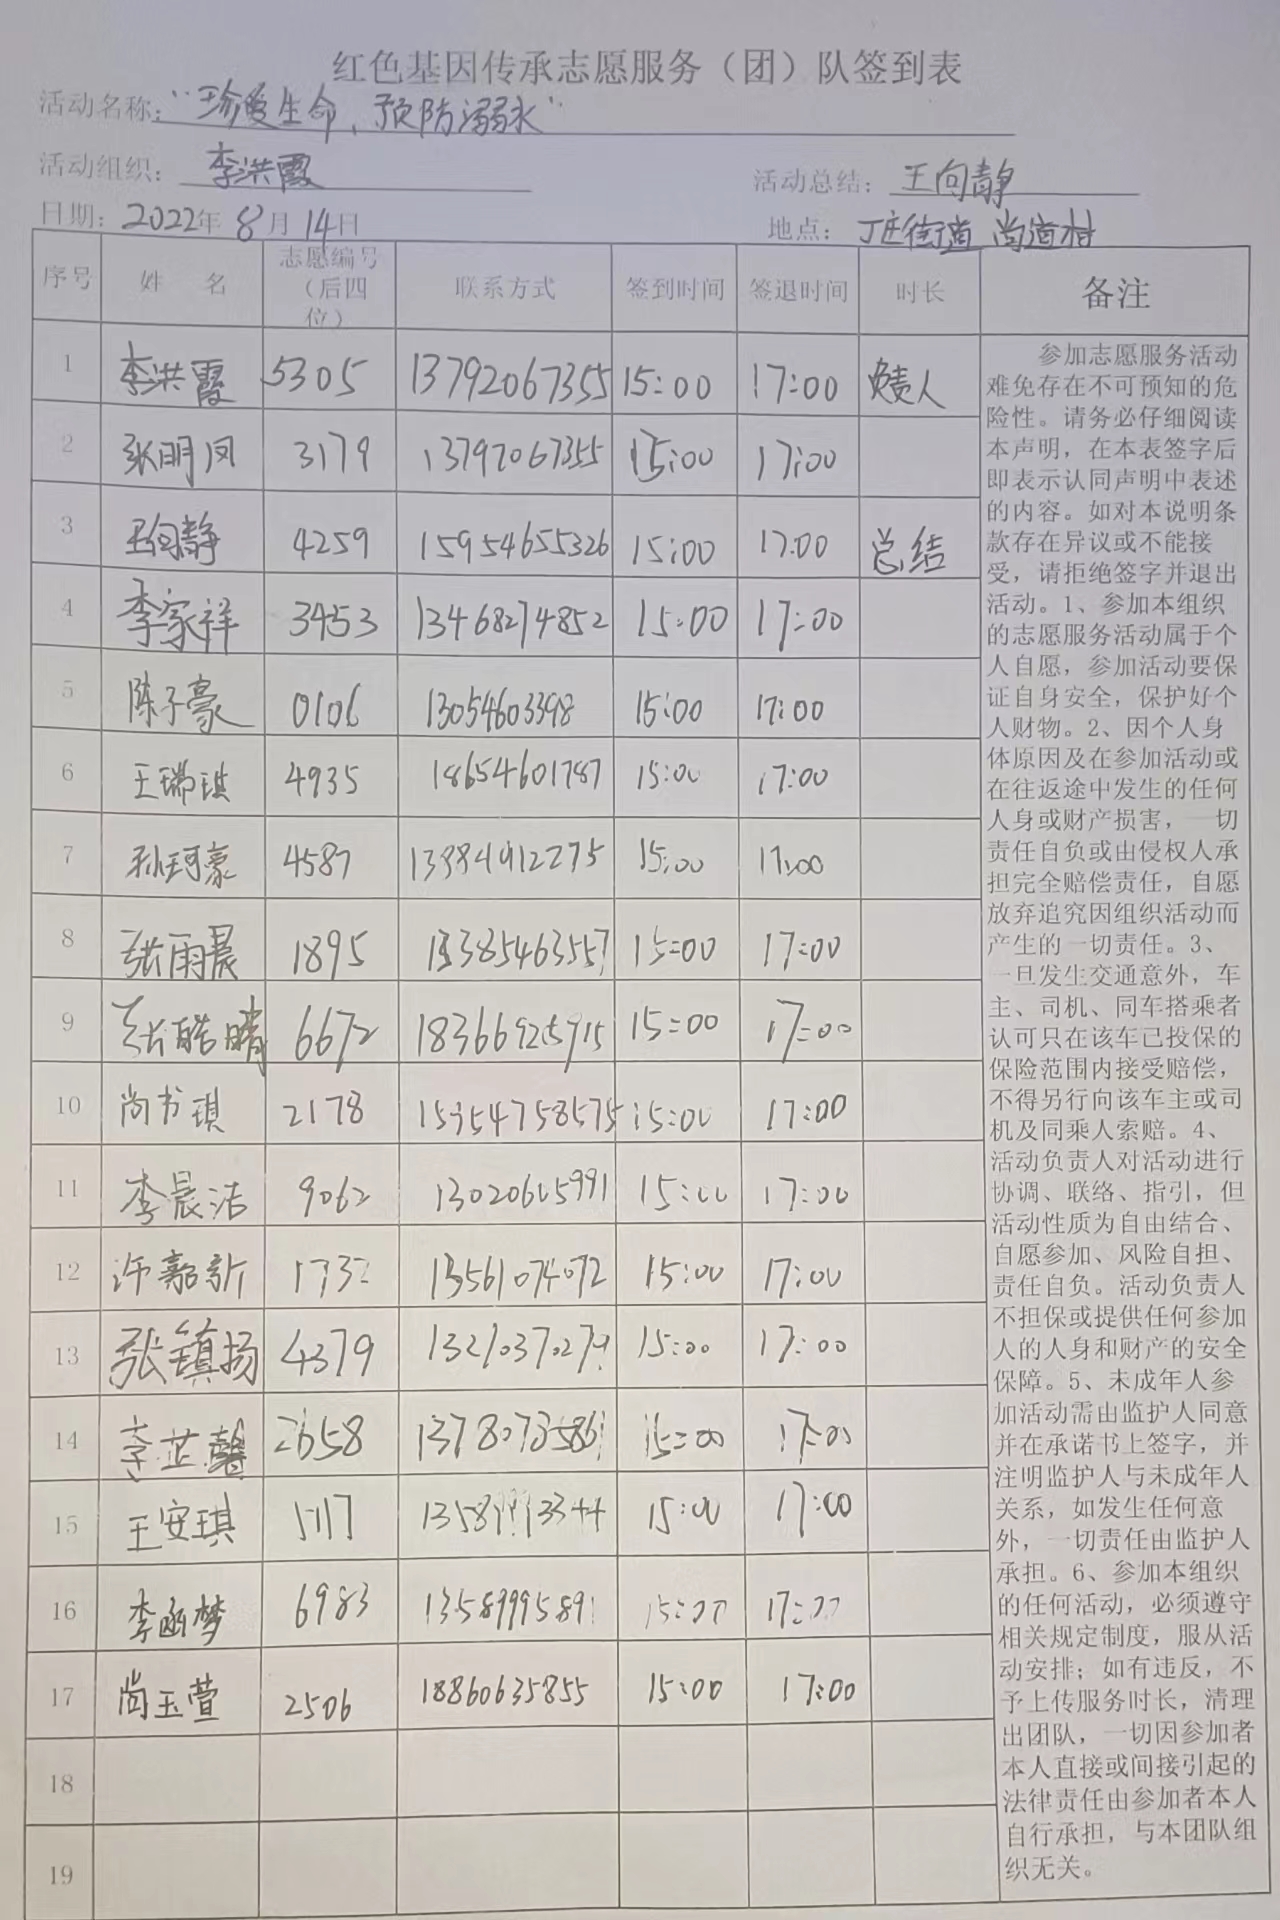 红色基因传承志愿服务（团）队签到表
活动名称：“珍爱生命，预防溺水”
活动组织：李洪霞
活动总结：王向静
日期：2022年8月14日
地点：丁庄街道 尚道村
序号 姓 名 志愿编号（后四位） 联系方式 签到时间 签退时间 时长 备注
1 李洪霞 5305 13792067355 15:00 17:00 负责人
2 张明凤 3179 13792067355 15:00 17:00
3 王向静 4259 15954655326 15:00 17:00 总结
4 李家祥 3453 13468274852 15:00 17:00
5 陈子豪 0106 13054603398 15:00 17:00
6 王瑞琪 4935 18654601787 15:00 17:00
7 孙珂豪 4587 13384912275 15:00 17:00
8 张雨晨 1895 15:00 17:00
9 张皓晴 6672 15:00 17:00
10 尚书琪 2178 15354758575 15:00 17:00
11 李晨洁 9062 13020605991 15:00 17:00
12 许嘉新 1732 13561074072 15:00 17:00
13 张镇扬 4379 15:00 17:00
14 李芷馨 2658 15:00 17:00
15 王安琪 5117 15:00 17:00
16 李函梦 6983 13589995891 15:00 17:00
17 尚玉萱 2506 18860635855 15:00 17:00
18
19
参加志愿服务活动
难免存在不可预知的危
险性。请务必仔细阅读
本声明，在本表签字后
即表示认同声明中表述
的内容。如对本说明条
款存在异议或不能接
受，请拒绝签字并退出
活动。1、参加本组织
的志愿服务活动属于个
人自愿，参加活动要保
证自身安全，保护好个
人财物。2、因个人身
体原因及在参加活动或
在往返途中发生的任何
人身或财产损害，一切
责任自负或由侵权人承
担完全赔偿责任，自愿
放弃追究因组织活动而
产生的一切责任。3、
一旦发生交通意外，车
主、司机、同车搭乘者
认可只在该车已投保的
保险范围内接受赔偿，
不得另行向该车主或司
机及同乘人索赔。4、
活动负责人对活动进行
协调、联络、指引，但
活动性质为自由结合、
自愿参加、风险自担、
责任自负。活动负责人
不担保或提供任何参加
人的人身和财产的安全
保障。5、未成年人参
加活动需由监护人同意
并在承诺书上签字，并
注明监护人与未成年人
关系，如发生任何意
外，一切责任由监护人
承担。6、参加本组织
的任何活动，必须遵守
相关规定制度，服从活
动安排；如有违反，不
予上传服务时长，清理
出团队，一切因参加者
本人直接或间接引起的
法律责任由参加者本人
自行承担，与本团队组
织无关。